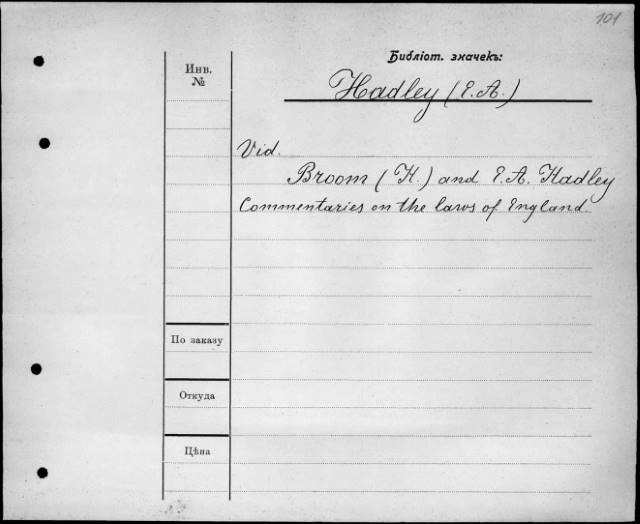 101
Библіот. значекъ:
Инв.
№
Hadley (E. A.)
Vid.
Broom (H.) and E. A. Hadley
Commentaries on the laws of England.
По заказу
Откуда
Цѣна